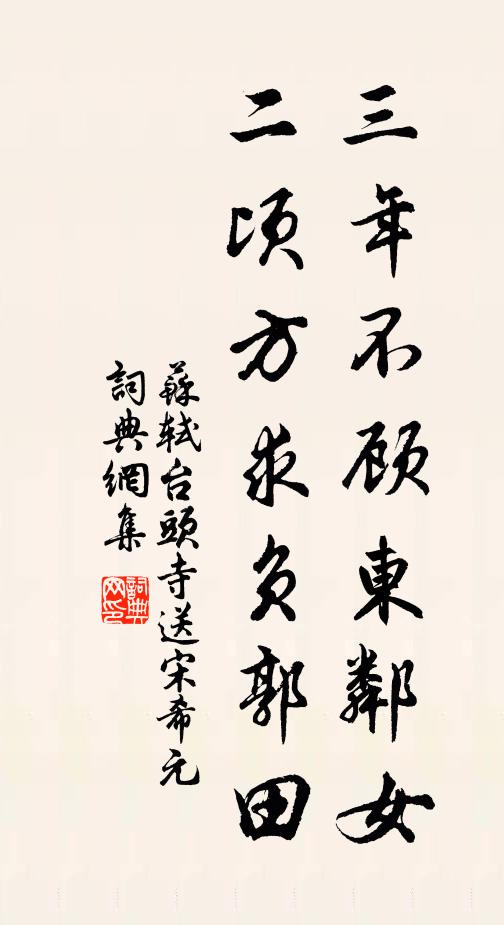 三年不顾東鄰女
二頃方求負郭田
蘇軾台頭寺送宋希元
詞典網集
詞典網印